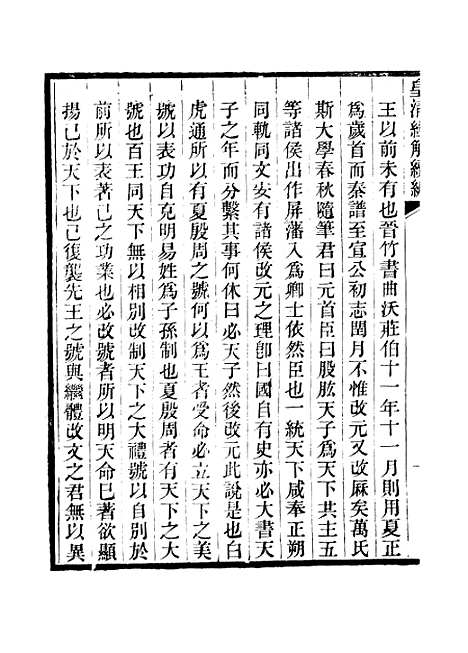 皇清經解續編
王以前未有也晉竹書曲沃莊伯十一年十一月則用夏正
爲歲首而秦譜至宣公初志閏月不惟改元又改厤矣萬氏
斯大學春秋隨筆君曰元首臣曰股肱天子爲天下共主五
等諸侯出作屏藩入爲卿士依然臣也一統天下咸奉正朔
同軌同文安有諸侯改元之理卽曰國自有史亦必大書天
子之年而分繫其事何休曰必天子然後改元此說是也白
虎通所以有夏殷周之號何以爲王者受命必立天下之美
號以表功自克明易姓爲子孫制也夏殷周者有天下之大
號也百王同天下無以相別改制天下之大禮號以自別於
前所以表著己之功業也必改號者所以明天命已著欲顯
揚己於天下也己復襲先王之號與繼體改文之君無以異